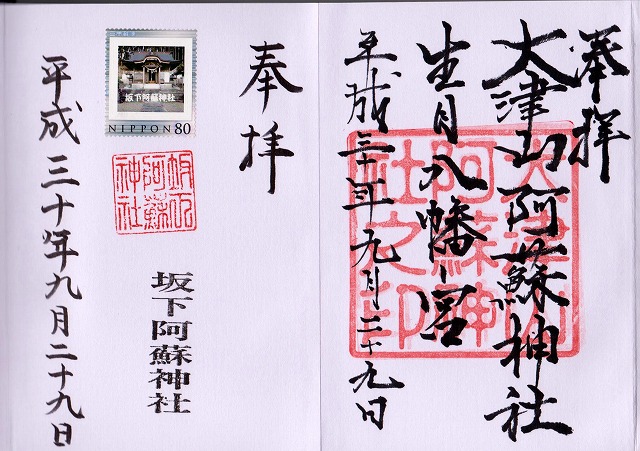 奉拝
大津山阿蘇神社
生目八幡宮
平成三十年九月二十九日
大津山阿蘇神社之印
奉拝
坂下阿蘇神社
NIPPON 80
坂下阿蘇神社
坂下阿蘇神社
平成三十年九月二十九日